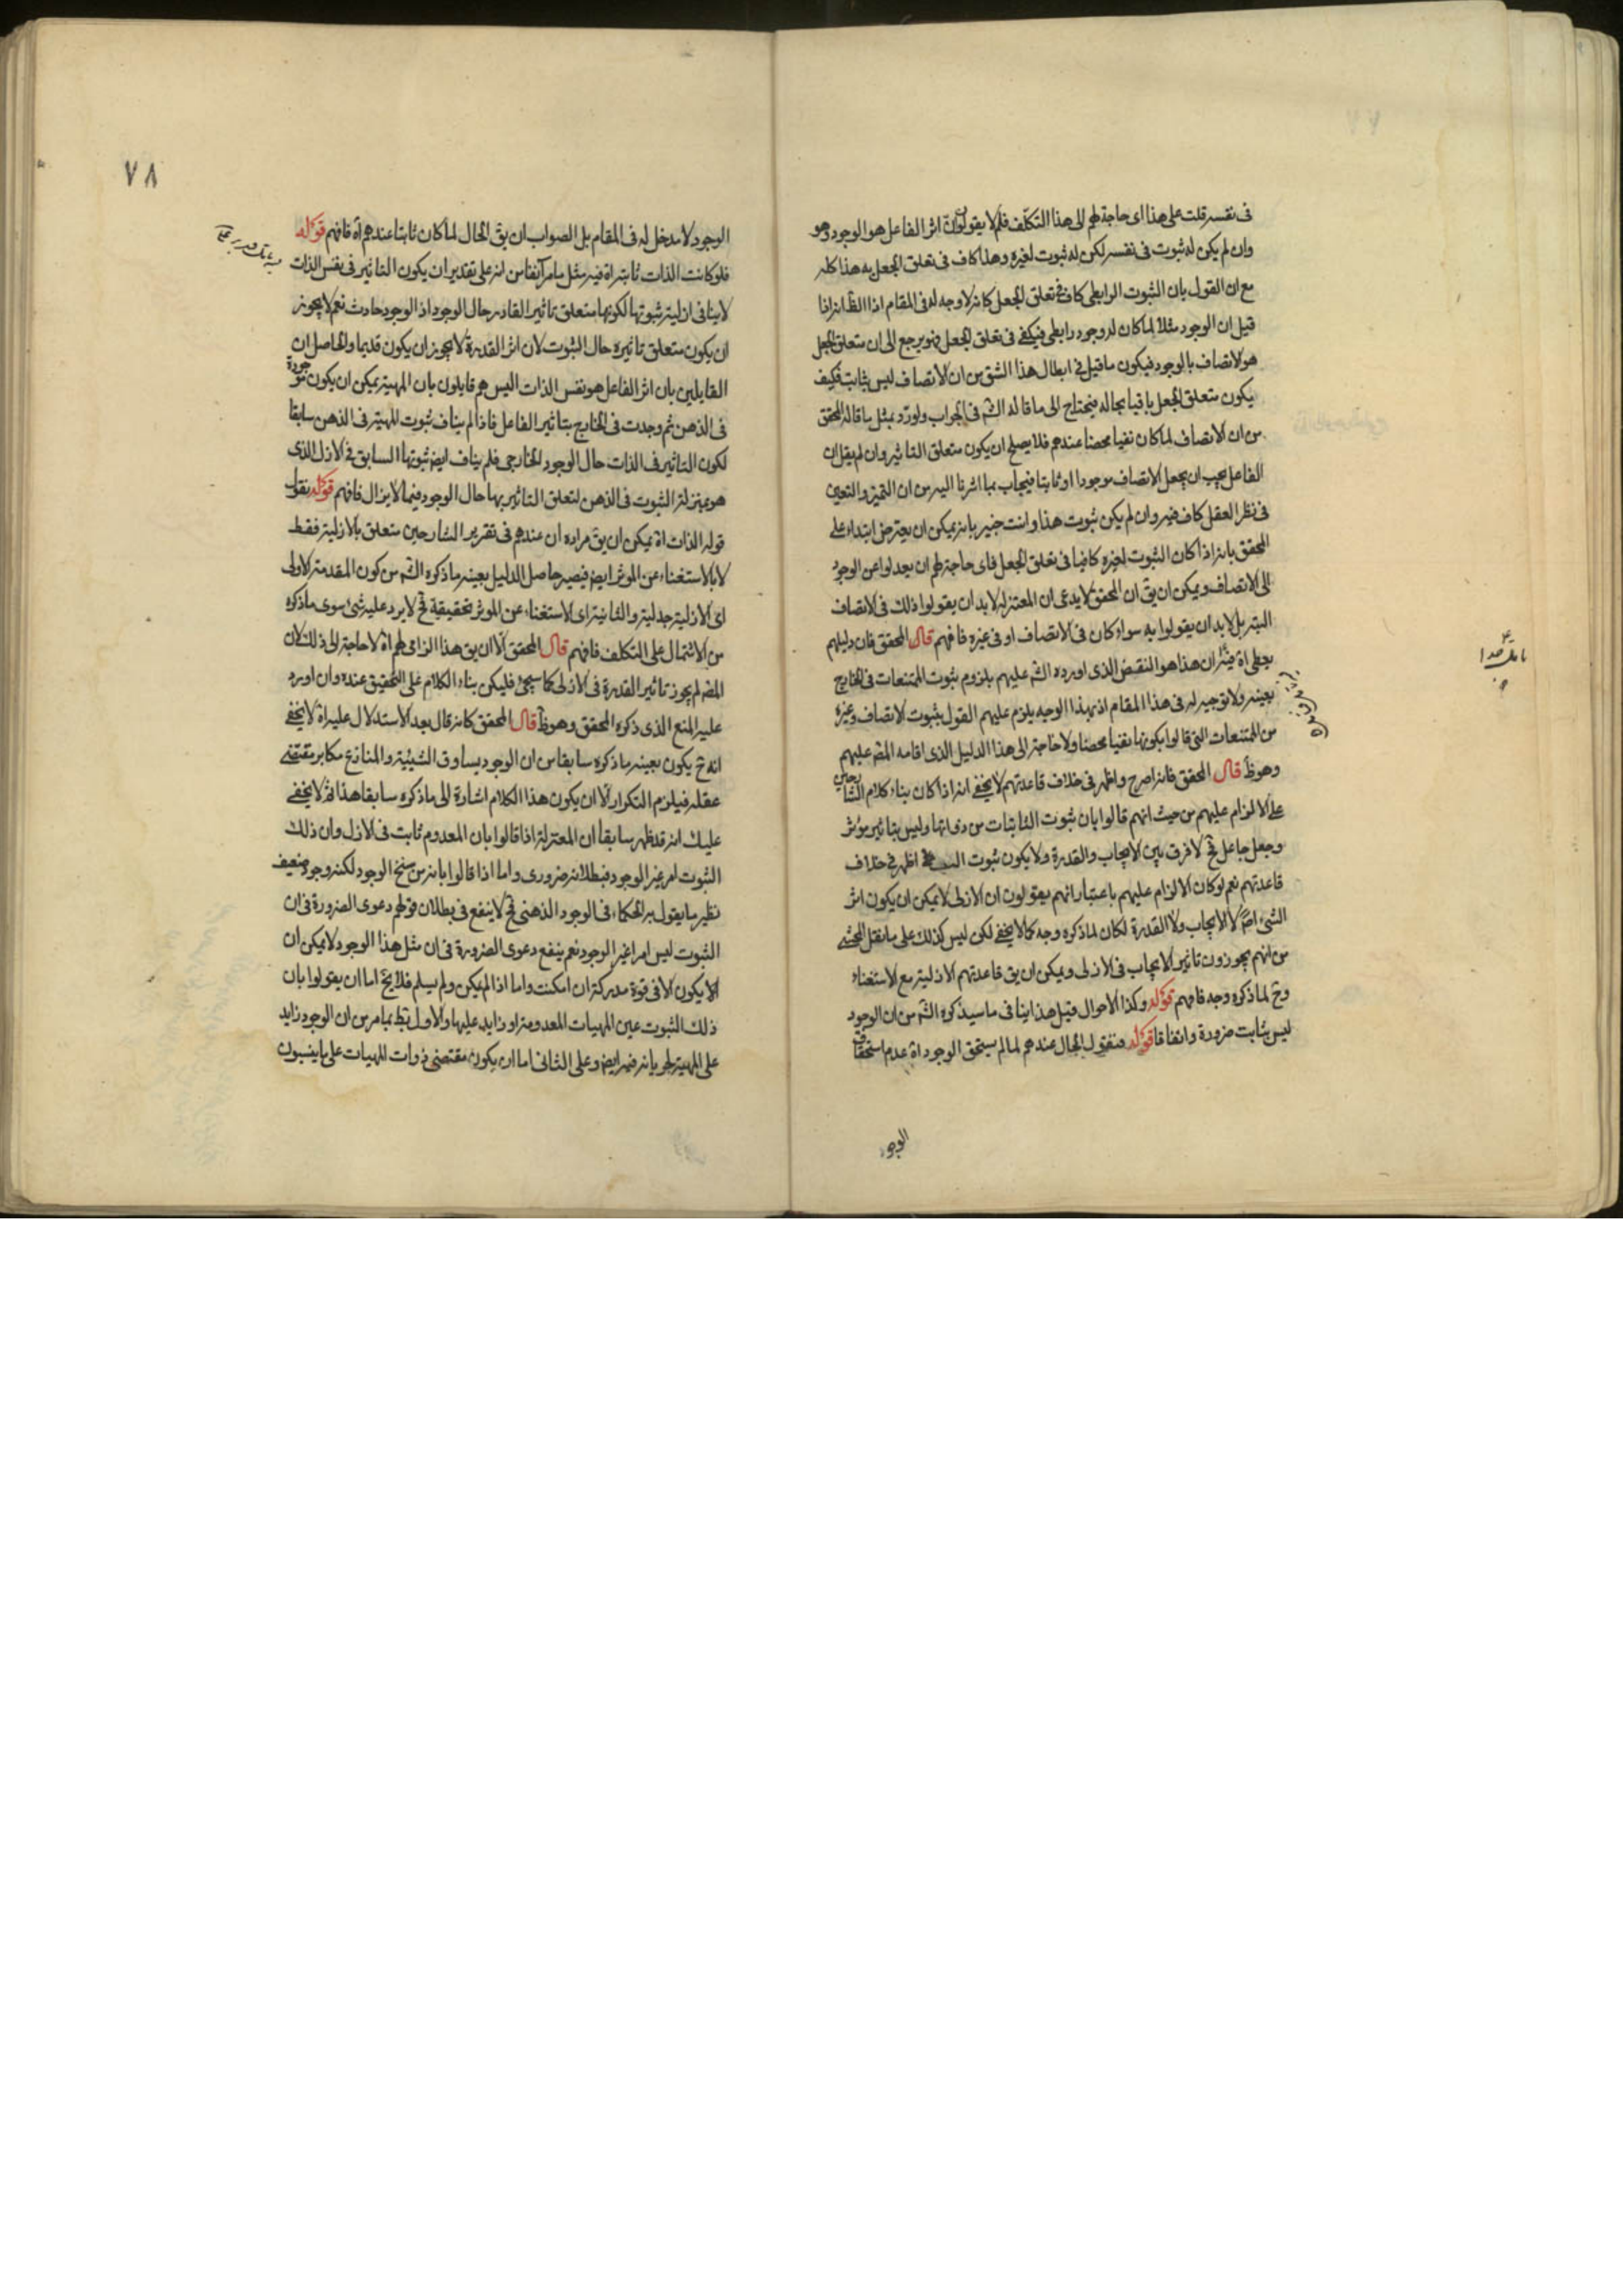 فى نفسه قلت على هذا اى حاجة لهم الى هذا التكلف فلم لا يقولون ان اثر الفاعل هو الوجود وهو
وان لم يكن له ثبوت فى نفسه لكن له ثبوت لغيره وهذا كاف فى تعلق الجعل به هذا كله
مع ان القول بان الثبوت الرابطى كاف فى تعلق الجعل كانه لا وجه له فى المقام اذ الظ انه اذا
قيل ان الوجود مثلا لما كان له وجود رابطى فيكفى فى تعلق الجعل فهو يرجع الى ان متعلق الجعل
هو الاتصاف بالوجود فيكون ما قيل فى ابطال هذا الشق من ان الاتصاف ليس بثابت فكيف
يكون متعلق الجعل باقيا بحاله فيحتاج الى ما قاله الش فى الجواب ولورد بمثل ما قاله المحقق
من ان الاتصاف لما كان نفيا محضا عندهم فلا يصلح ان يكون متعلق التاثير وان لم يقل ان
الفاعل يجب ان يجعل الاتصاف موجودا او ثابتا فيجاب بما اشرنا اليه من ان التميز والتعين
فى نظر العقل كاف فيه وان لم يكن ثبوت هذا وانت خبير بانه يمكن ان يعترض ابتداء على
المحقق بانه اذا كان الثبوت لغيره كافيا فى تعلق الجعل فاى حاجة لهم ان يعدلوا عن الوجود
الى الاتصاف ويمكن ان يق ان المحقق لا يدعى ان المعتزلة لا بد ان يقولوا ذلك فى الاتصاف
البتة بل لا بد ان يقولوا به سواء كان فى الاتصاف او فى غيره فافهم قال المحقق فان دليلهم
يجعلى اه فيه ان هذا هو النقض الذى اورده الش عليهم بلزوم ثبوت الممتنعات فى الخارج
بعينه ولا توجيه له فى هذا المقام اذ بهذا الوجه يلزم عليهم القول بثبوت الاتصاف وغيره
من الممتنعات التى قالوا بكونها نفيا محضا ولا حاجة الى هذا الدليل الذى اقامه المص عليهم
وهو ظ قال المحقق فانه اصرح واظهر فى خلاف قاعدتهم لا يخفى انه اذا كان بناء كلام الشارحين
على الالزام عليهم من حيث انهم قالوا بان ثبوت الثابتات من ذواتها وليس بتاثير موثر
وجعل جاعل فح لا فرق بين الايجاب والقدرة ولا يكون ثبوت اظهر فى خلاف
قاعدتهم نعم لو كان الالزام عليهم باعتبار انهم يقولون ان الازلى لا يمكن ان يكون اثر
الشىء اصلا لا الايجاب ولا القدرة لكان لما ذكره وجه كما لا يخفى لكن ليس كذلك على ما نقل المحشى
من انهم يجوزون تاثير الايجاب فى الازلى ويمكن ان يق قاعدتهم الازلية مع الاستغناء
وح لما ذكره وجه فافهم قوله وكذا الاحوال قيل هذا ينافى ما سيذكره الش من ان الوجود
ليس بثابت ضرورة واتفاقا قوله فنقول الحال عندهم لما لم يستحق الوجود اه عدم استحقاق
الوجود
٧٨
الوجود لا مدخل له فى المقام بل الصواب ان يق الحال لما كان ثابتا عندهم اه فافهم قوله
فلو كانت الذات ثابتة اه فيه مثل ما مر آنفا من انه على تقدير ان يكون التاثير فى نفس الذات
لا ينافى ازلية ثبوتها لكونها متعلق تاثير القادر حال الوجود اذ الوجود حادث نعم لا يجوز
ان يكون متعلق تاثيره حال الثبوت لان اثر القدرة لا يجوز ان يكون قديما والحاصل ان
القايلين بان اثر الفاعل هو نفس الذات اليس هم قايلون بان المهية يمكن ان يكون موجودة
فى الذهن ثم وجدت فى الخارج بتاثير الفاعل فاذا لم يناف ثبوت المهية فى الذهن سابقا
لكون التاثير فى الذات حال الوجود الخارجى فلم يناف ايض ثبوتها السابق فى الازل الذى
هو بمنزلة الثبوت فى الذهن لتعلق التاثير بها حال الوجود فيما لا يزال فافهم قوله نقول
قوله الذات اه يمكن ان يق مراده ان عندهم فى تقرير الشارحين متعلق بالازلية فقط
لا بالاستغناء عن الموثر ايض فيصير حاصل الدليل بعينه ما ذكره الش من كون المقدمة الاولى
اى الازلية جدلية والثانية اى الاستغناء عن الموثر تحقيقية فح لا يرد عليه شئ سوى ما ذكره
من الاشتمال على التكلف فافهم قال المحقق الا ان يق هذا الزامى لهم اه لا حاجة الى ذلك لان
المص لم يجوز تاثير القدرة فى الازلى كما سيجئ فليكن بناء الكلام على التحقيق عنده وان اورد
عليه المنع الذى ذكره المحقق وهو ظ قال المحقق كانه قال بعد الاستدلال عليه اه لا يخفى
انه ح يكون بعينه ما ذكره سابقا من ان الوجود يساوق الشيئية والمنازع مكابر مقتضى
عقله فيلزم التكرار الا ان يكون هذا الكلام اشارة الى ما ذكره سابقا هذا ثم لا يخفى
عليك انه قد ظهر سابقا ان المعتزلة اذا قالوا بان المعدوم ثابت فى الازل وان ذلك
الثبوت امر غير الوجود فبطلانه ضرورى واما اذا قالوا بانه من سنخ الوجود لكنه وجود ضعيف
نظير ما يقول به الحكماء فى الوجود الذهنى فح لا ينفع فى بطلان قولهم دعوى الضرورة فى ان
الثبوت ليس امرا غير الوجود نعم ينفع دعوى الضرورة فى ان مثل هذا الوجود لا يمكن ان
الا يكون الا فى قوة مدركة ان امكنت واما اذا لم يكن ولم يسلم فلا يخ اما ان يقولوا بان
ذلك الثبوت عين المهيات المعدومة او زايد عليها والاول بط بما مر من ان الوجود زايد
على المهية لجريانه فيه ايض وعلى الثانى اما ان يكون مقتضى ذوات المهيات على ما ينسبون